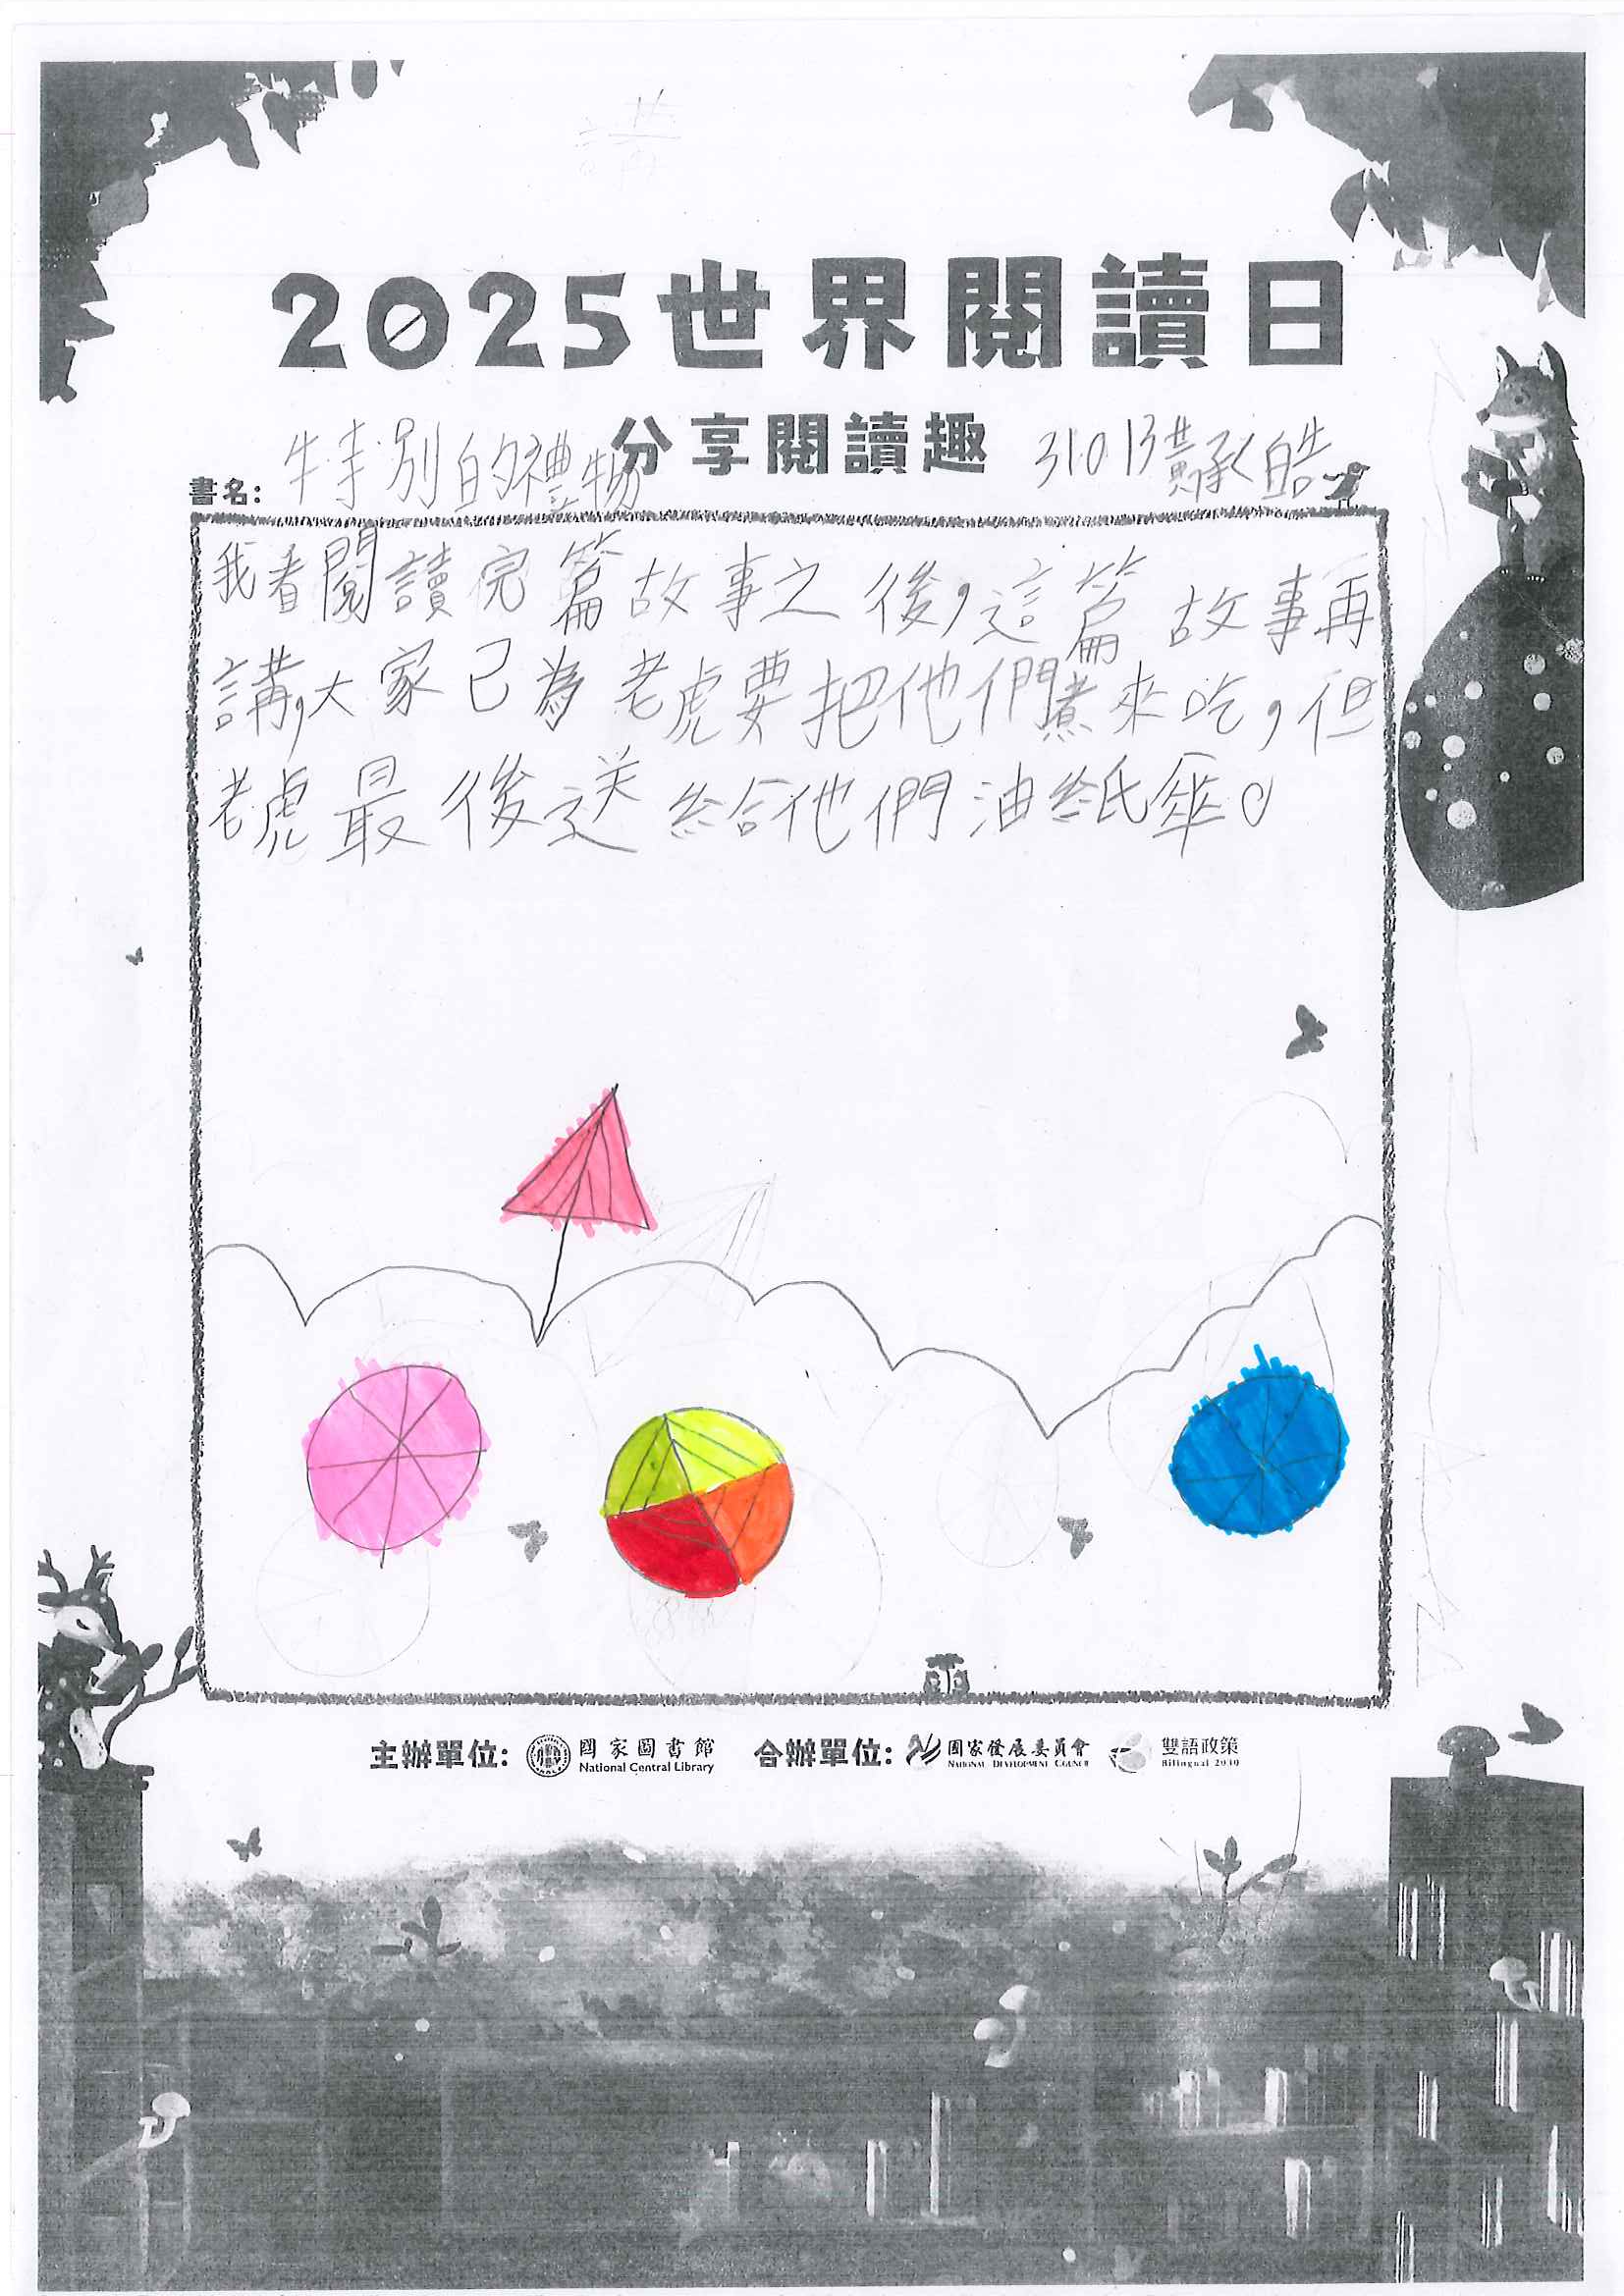 2025世界閱讀日
分享閱讀趣
書名：特別的禮物
31013黃承皓
我看閱讀完篇故事之後，這篇故事再
講，大家已為老虎要把他們煮來吃，但
老虎最後送給他們油紙傘。
主辦單位： 國家圖書館 National Central Library 合辦單位： 國家發展委員會 National Development Council 雙語政策 Bilingual 2030